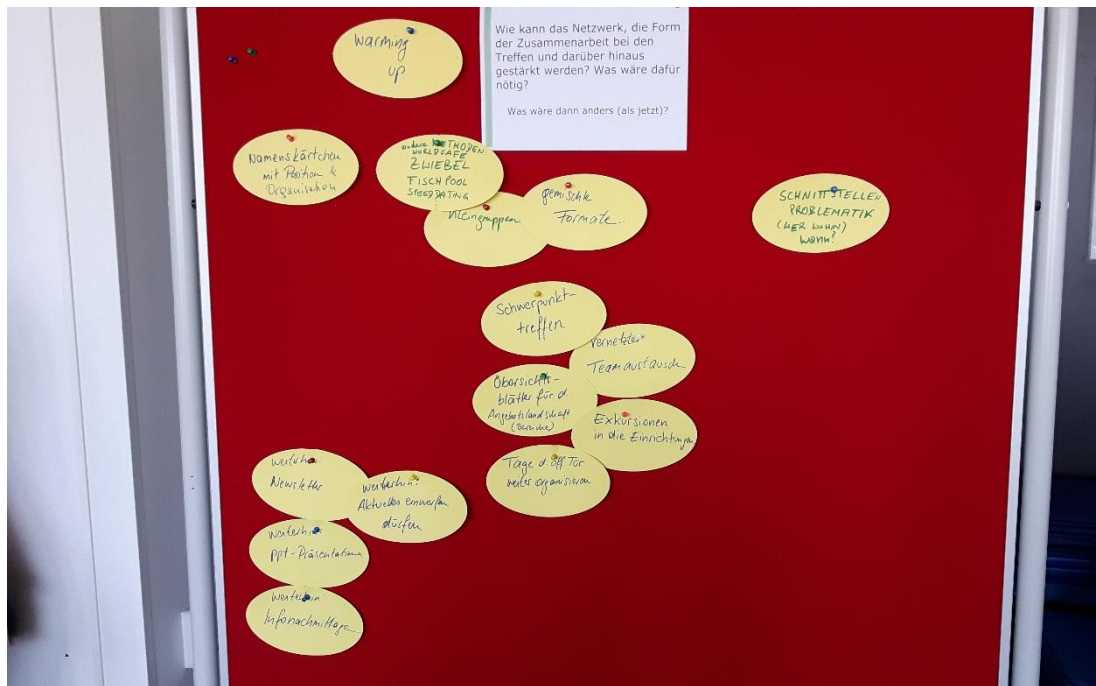 Warming
up
Wie kann das Netzwerk, die Form
der Zusammenarbeit bei den
Treffen und darüber hinaus
gestärkt werden? Was wäre dafür
nötig?
Was wäre dann anders (als jetzt)?
Namenskärtchen
mit Position &
Organisation
andere METHODEN:
WORLDCAFE
ZWIEBEL
FISCHPOOL
SPEEDDATING
Kleingruppen
gemischte
Formate
SCHNITTSTELLEN
PROBLEMATIK
(WER WOHIN)
Wann?
Schwerpunkt-
treffen
Vernetzter
Teamaustausch
Übersichts-
blätter für d.
Angebotslandschaft
(Bereiche)
Exkursionen
in die Einrichtungen
Tage d. off Tür
weiter organisieren
weiterhin
Newsletter
weiterhin:
Aktuelles einwerfen
dürfen
weiterhin
ppt-Präsentation
weiterhin
Infonachmittage